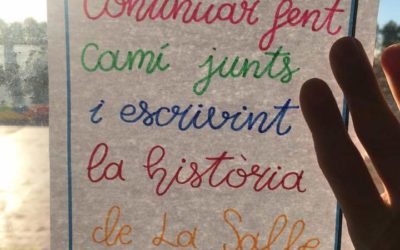 Continuar fent
camí junts
i escrivint
la història
de La Salle